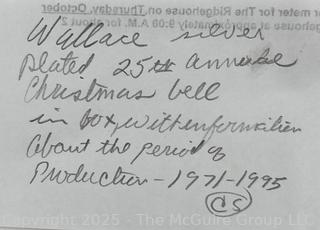 r meter for The Ridgehouse on Thursday, October
gehouse at approximately 9:00 A.M. for about 2
Wallace silver
plated 25th annual
Christmas bell
in box, with information
about the period of
Production - 1971-1995
CS
Copyright 2025 - The McGuire Group LLC